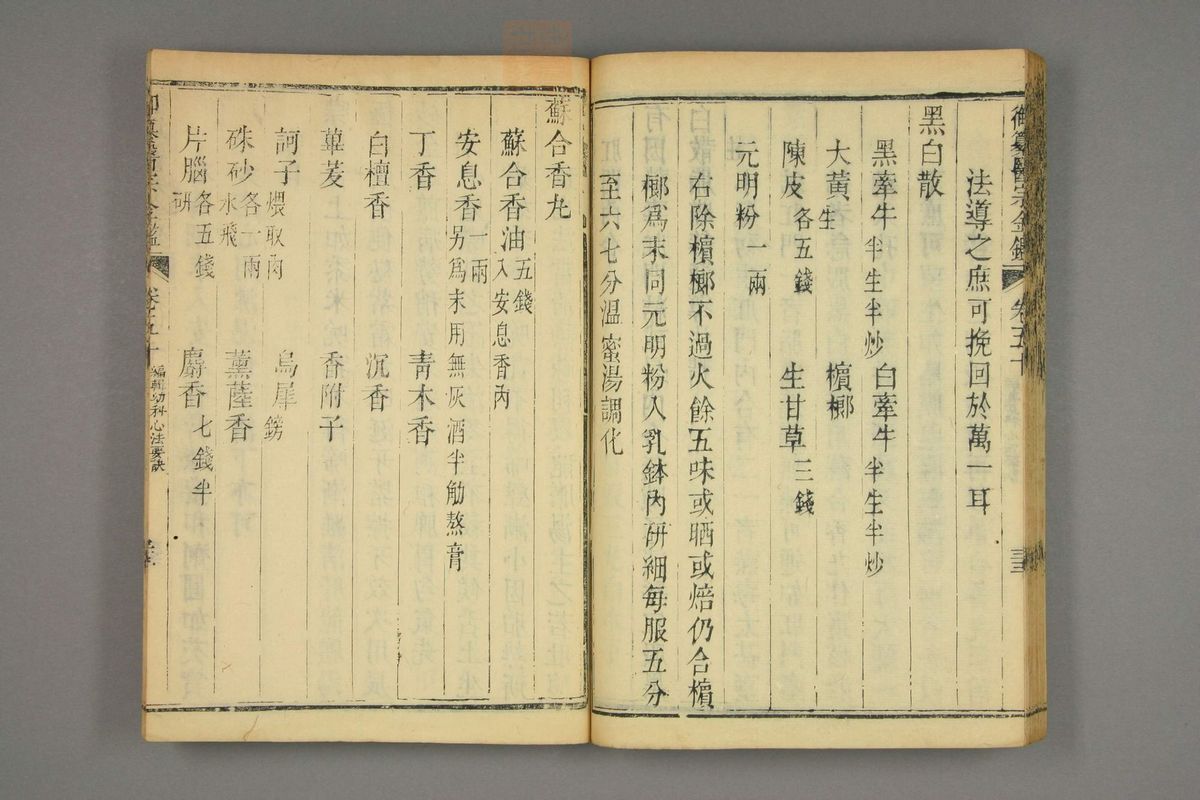 御纂醫宗金鑑 卷五十
法導之庶可挽回於萬一耳
黑白散
黑牽牛半生半炒 白牽牛半生半炒
大黃生 檳榔
陳皮各五錢 生甘草三錢
元明粉一兩
右除檳榔不過火餘五味或晒或焙仍合檳
榔爲末同元明粉入乳鉢內研細每服五分
至六七分溫蜜湯調化
蘇合香丸
蘇合香油五錢入安息香內
安息香一兩另爲末用無灰酒半觔熬膏
丁香 青木香
白檀香 沉香
蓽茇 香附子
訶子煨取肉 烏犀鎊
硃砂各一兩水飛 薰薩香
片腦研各五錢 麝香七錢半
卷之五十 編輯幼科心法要訣